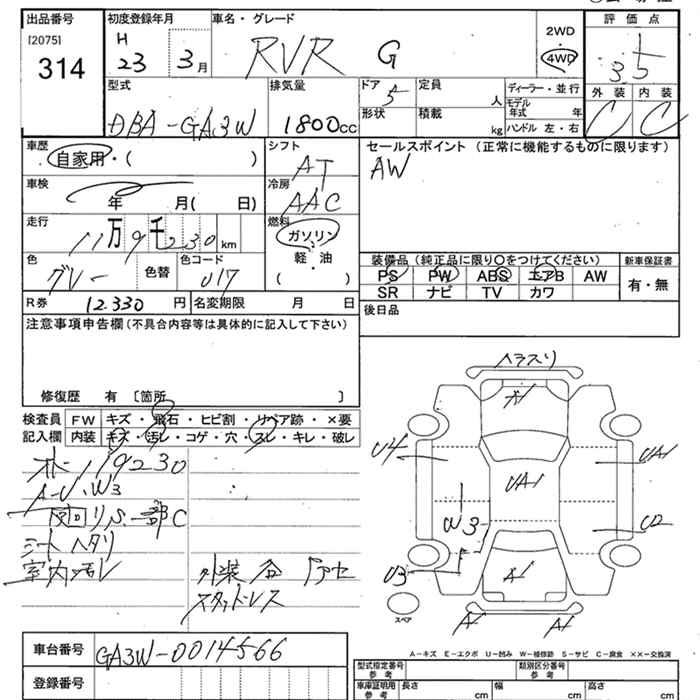 出品番号 初度登録年月 車名・グレード 評価点
[2075] H 2WD
314 23 3月 RVR G 4WD 3.5
型式 排気量 ドア 定員 ディーラー・並行 外装 内装
5 人 モデル年式 年
DBA-GA3W 1800cc 形状 積載 kg ハンドル 左・右 C C
車歴 自家用・( ) シフト セールスポイント (正常に機能するものに限ります)
AT AW
車検 年 月( 日) 冷房
AAC
走行 燃料
11万9千230km ガソリン
色 色替 色コード 軽・油 装備品 (純品に限り○をつけてください) 新車保証書
グレー 017 ( ) PS PW ABS エアB AW 有・無
R券 12.330円 名変期限 月 日 SR ナビ TV カワ
注意事項申告欄 (不具合内容等は具体的に記入して下さい) 後日品
修復歴 有 〔箇所 〕
検査員 FW キズ・飛石・ヒビ割・リペア跡・×要
記入欄 内装 キズ・汚レ・コゲ・穴・スレ・キレ・破レ
119230
A-U.W3
リS.一部C
シートヘタリ
室内汚レ 外装
スタッドレス
U4 UA1
UA1
W3 U2
U3 A1
スペア A1 A1
A-キズ E-エクボ U-凹み W-補修跡 S-サビ C-腐食 ××-交換済
車台番号 GA3W-0014566
登録番号
型式指定番号 参考 類別区分番号 参考
車庫証明用 参考 長さ cm 幅 cm 高さ cm